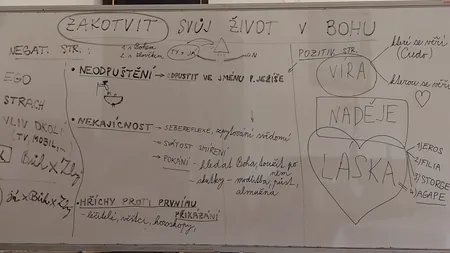 ZAKOTVIT SVŮJ ŽIVOT V BOHU
NEGAT. STR.:
1. s Bohem
2. s člověkem
TY + JÁ
EGO
STRACH
VLIV OKOLÍ
TV, MOBIL
Bůh x Zlý
já x Bůh x Zlý
• NEODPUŠTĚNÍ - ODPUSTIT VE JMÉNU P. JEŽÍŠE
• NEKAJÍCNOST - SEBEREFLEXE, zpytování svědomí
- SVÁTOST SMÍŘENÍ
- POKÁNÍ - hledat Boha, toužit po něm
- skutky - modlitba, půst, almužna
• HŘÍCHY PROTI PRVNÍMU PŘIKÁZÁNÍ
- léčitelé, věštci, horoskopy,
POZITIV. STR.
která se věří
(Credo)
VÍRA
kterou se věří
NADĚJE
LÁSKA
1) EROS
2) FILIA
3) STORGE
4) AGAPE